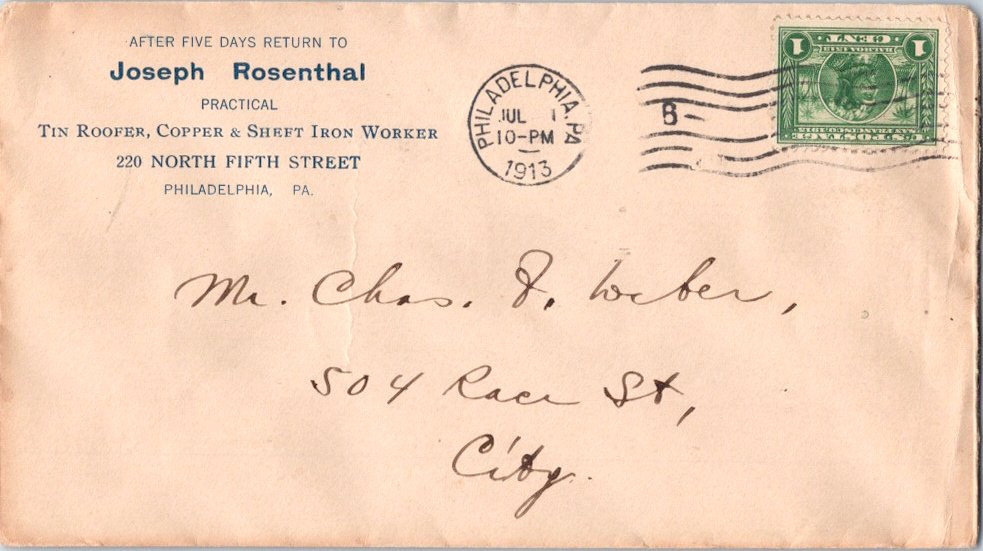 AFTER FIVE DAYS RETURN TO
Joseph Rosenthal
PRACTICAL
TIN ROOFER, COPPER & SHEFT IRON WORKER
220 NORTH FIFTH STREET
PHILADELPHIA, PA.
PHILADELPHIA, PA
JUL 1
10-PM
1913
B-
U.S. POSTAGE
1 CENT 1
Mr. Chas. F. Weber,
504 Race St,
City.